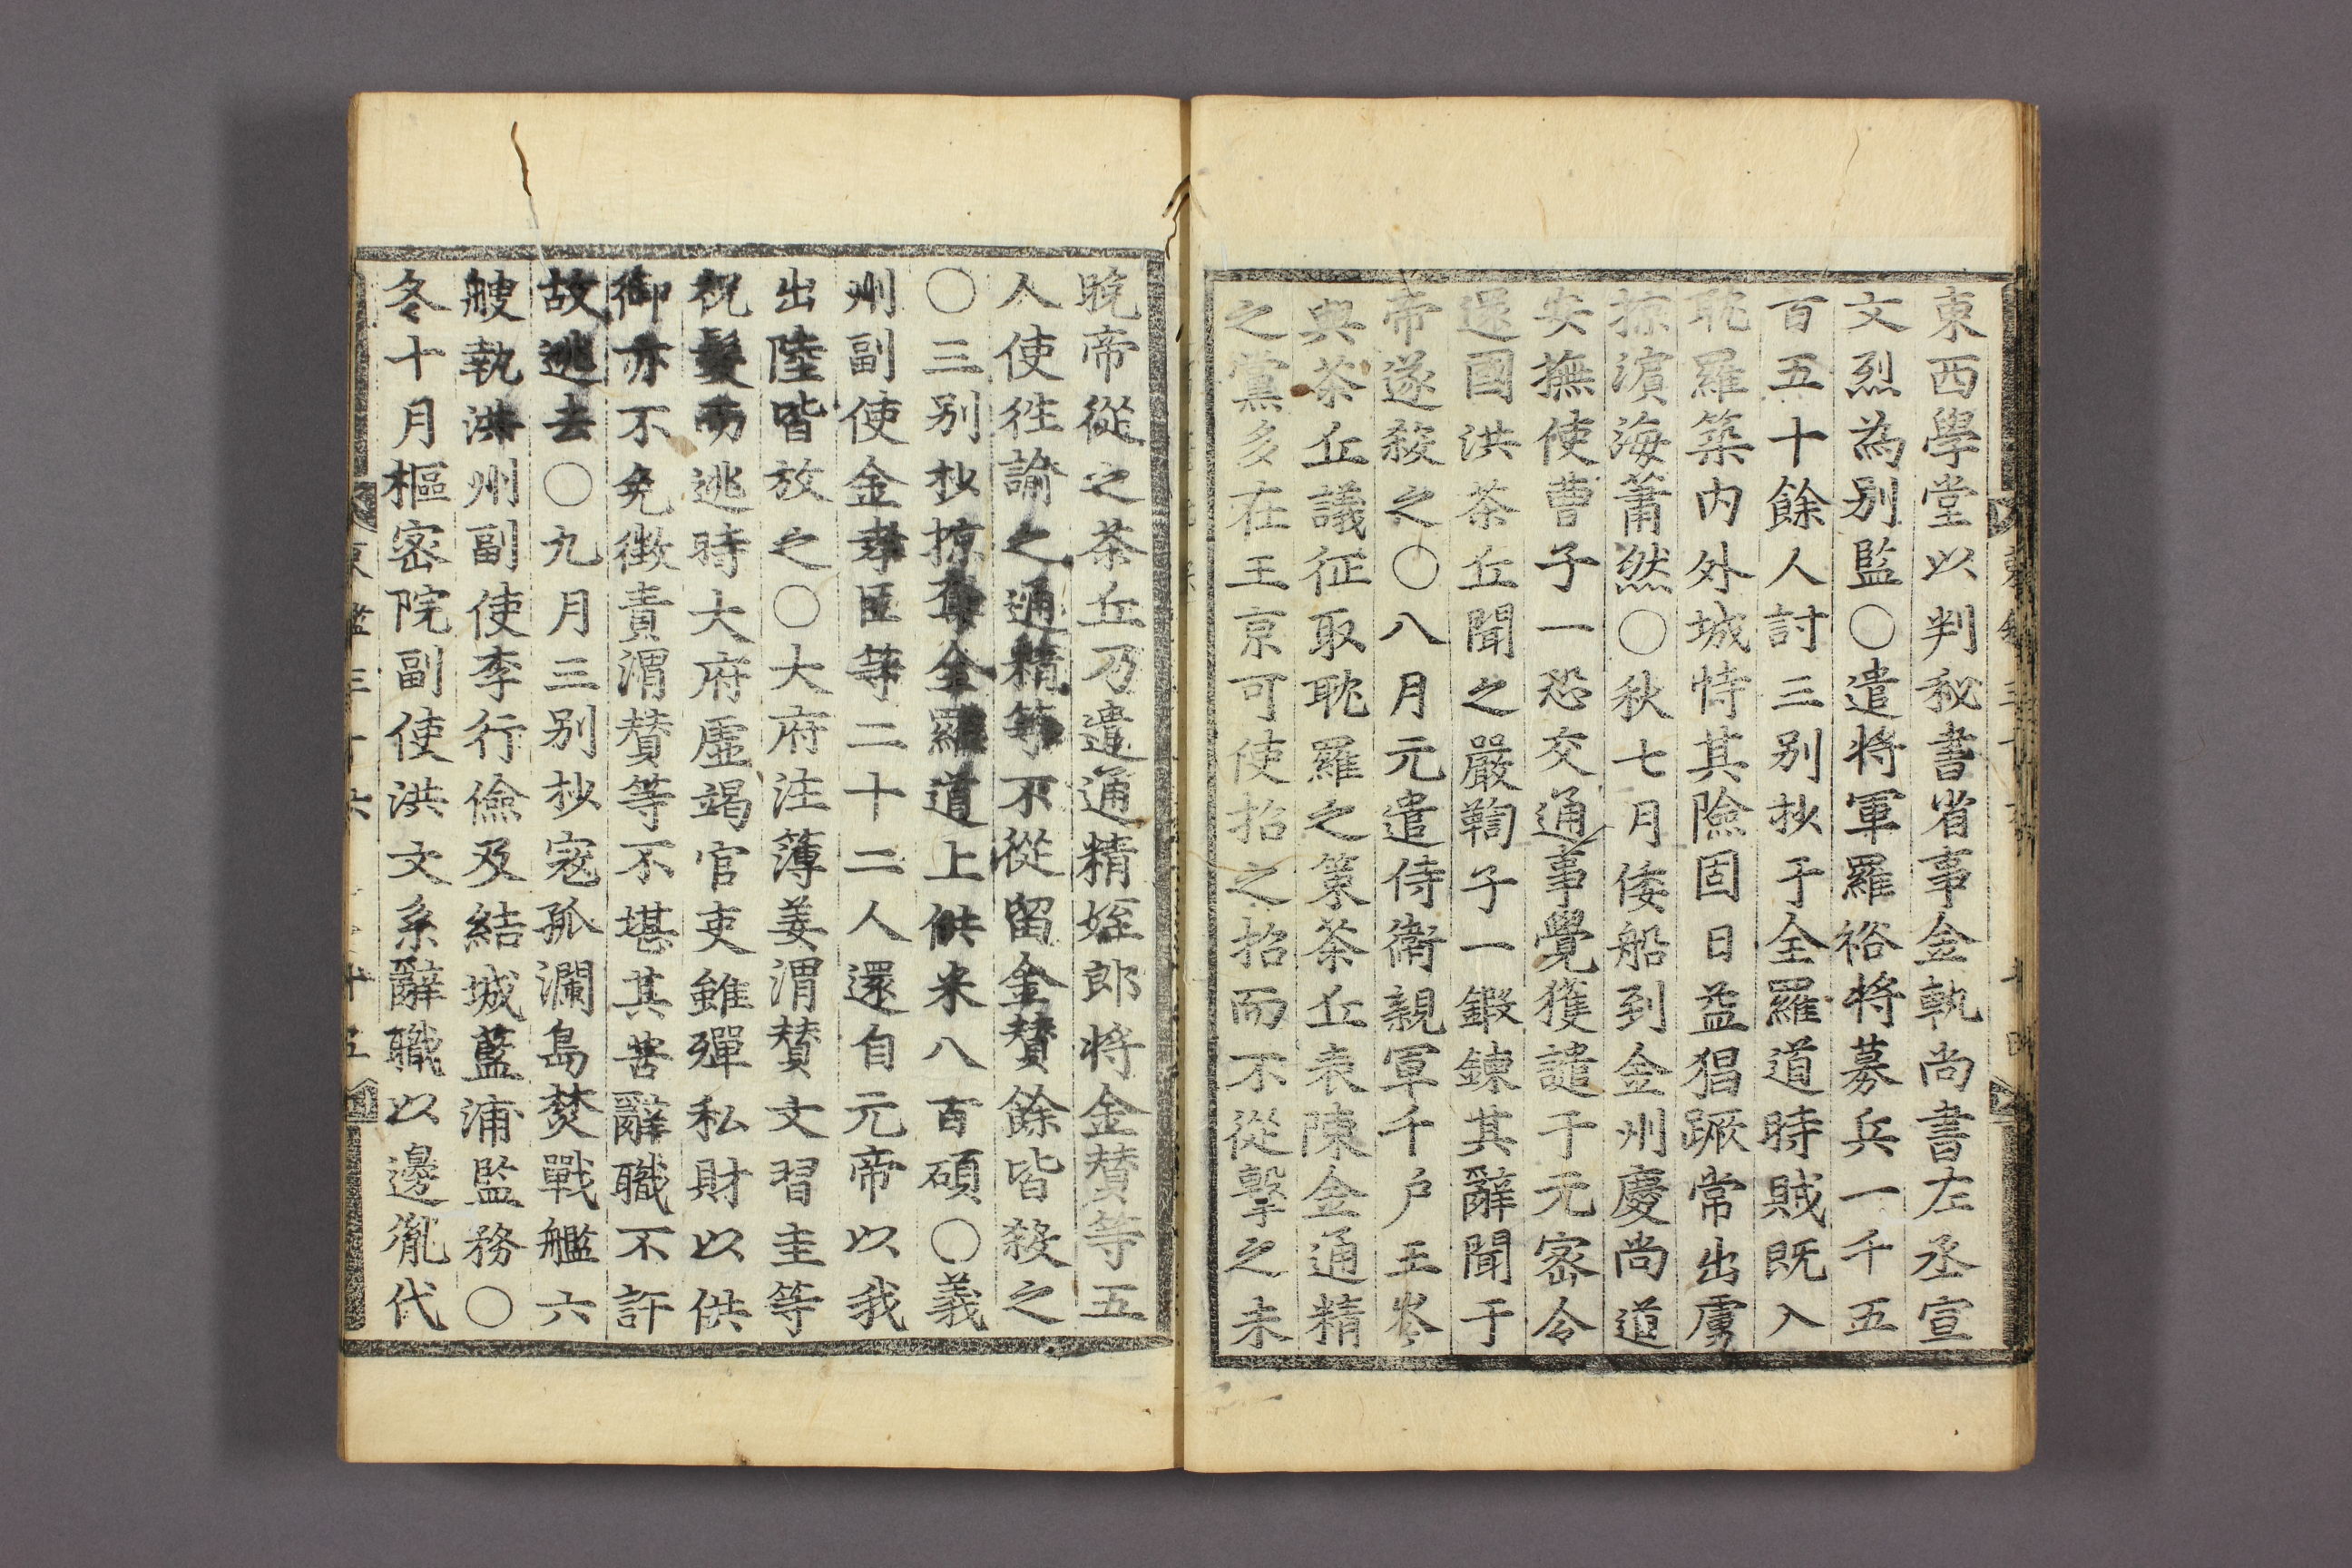 東西學堂以判秘書省事金軌尚書左丞宣
文烈為别監○遣将軍羅裕将募兵一千五
百五十餘人討三别抄于全羅道時賊既入
耽羅築内外城恃其險固日益猖蹶常出虜
掠濱海蕭然○秋七月倭船到金州慶尚道
安撫使曹子一恐交通事覺獲譴于元宻令
還國洪茶丘聞之嚴鞫子一鍛鍊其辭聞于
帝遂殺之○八月元遣侍衛親軍千户王岑
與茶丘議征取耽羅之策茶丘表陳金通精
之黨多在王京可使招之招而不從擊之未
晚帝從之茶丘乃遣通精姪郎将金贊等五
人使徃諭之通精等不從留金贊餘皆殺之
○三别抄掠奪全羅道上供米八百碩○義
州副使金孝臣等二十二人還自元帝以我
出陸皆放之○大府注簿姜渭贊文習圭等
祝髮而逃時大府虛竭官吏雖殫私財以供
御亦不免徴責渭贊等不堪其苦辭職不許
故逃去○九月三别抄寇孤瀾島焚戰艦六
艘執洪州副使李行儉及結城藍浦監務○
冬十月樞宻院副使洪文系辭職以邊胤代
東鑑三十六
十五